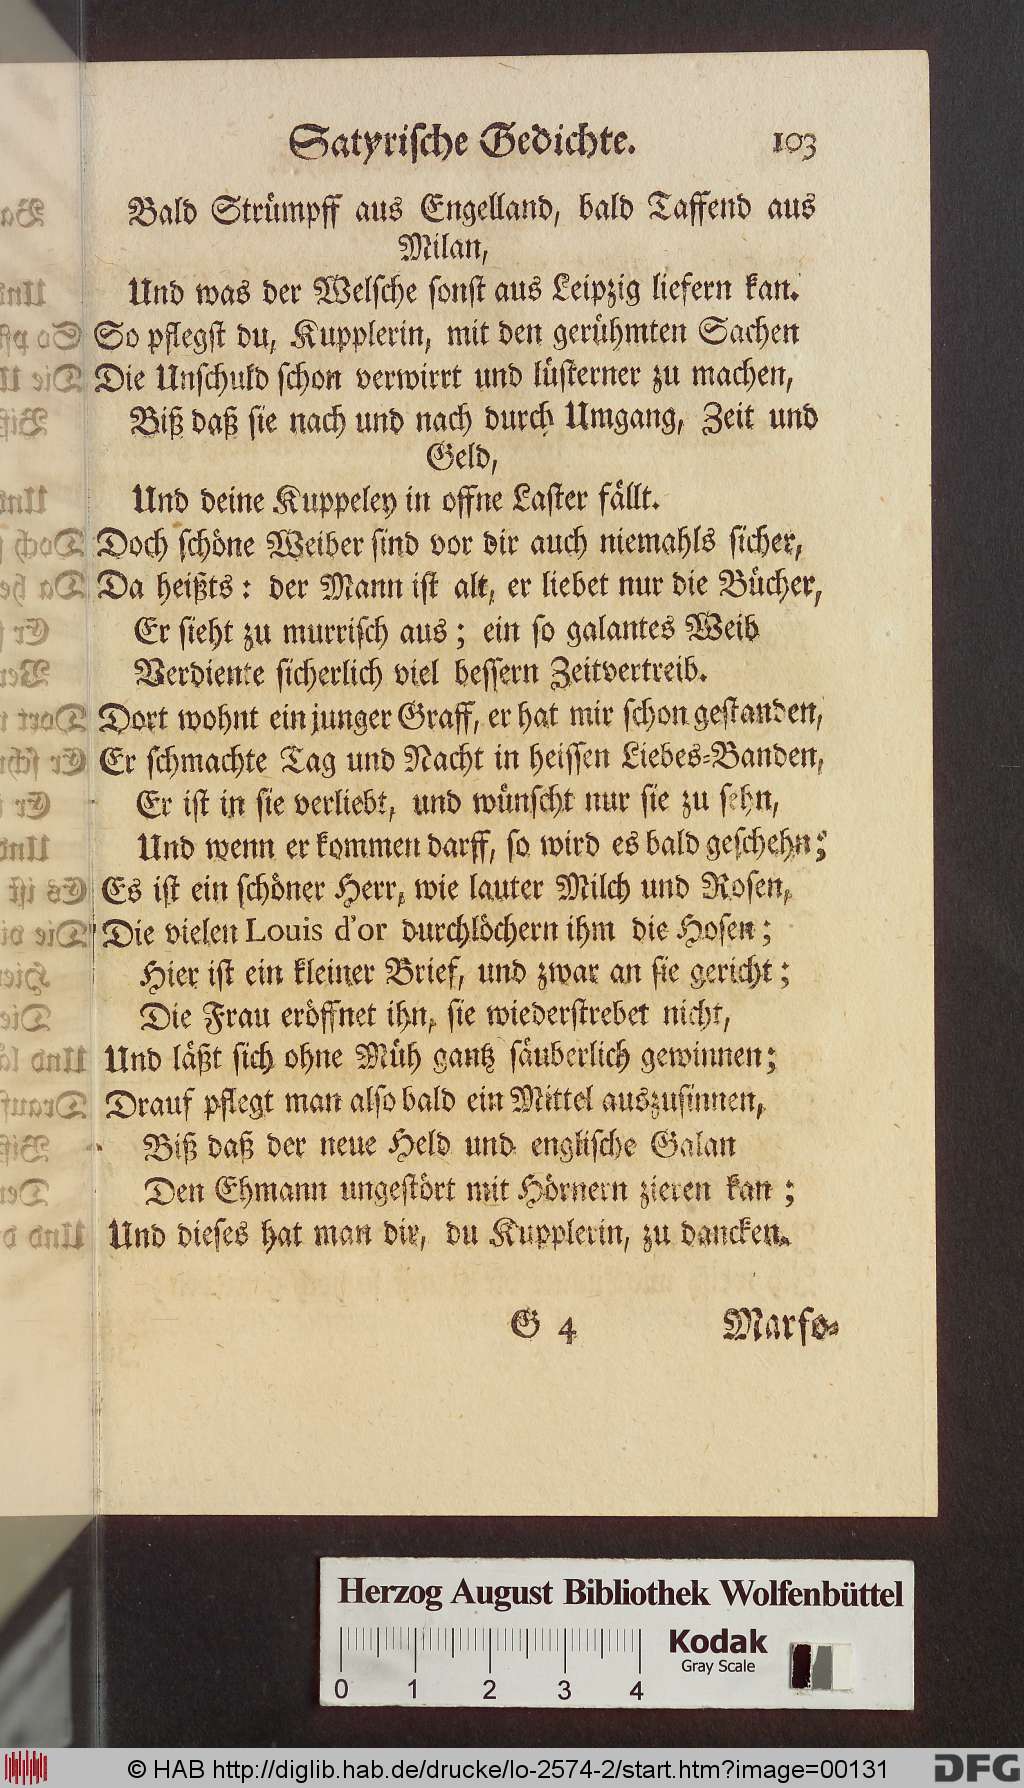 Satyrische Gedichte. 103
Bald Strümpff aus Engelland, bald Taffend aus
Milan,
Und was der Welsche sonst aus Leipzig liefern kan.
So pflegst du, Kupplerin, mit den gerühmten Sachen
Die Unschuld schon verwirrt und lüsterner zu machen,
Biß daß sie nach und nach durch Umgang, Zeit und
Geld,
Und deine Kuppeley in offne Laster fällt.
Doch schöne Weiber sind vor dir auch niemahls sicher,
Da heißts: der Mann ist alt, er liebet nur die Bücher,
Er sieht zu murrisch aus; ein so galantes Weib
Verdiente sicherlich viel bessern Zeitvertreib.
Dort wohnt ein junger Graff, er hat mir schon gestanden,
Er schmachte Tag und Nacht in heissen Liebes-Banden,
Er ist in sie verliebt, und wünscht nur sie zu sehn,
Und wenn er kommen darff, so wird es bald geschehn;
Es ist ein schöner Herr, wie lauter Milch und Rosen,
Die vielen Louis d'or durchlöchern ihm die Hosen;
Hier ist ein kleiner Brief, und zwar an sie gericht;
Die Frau eröffnet ihn, sie wiederstrebet nicht,
Und läßt sich ohne Müh gantz säuberlich gewinnen;
Drauf pflegt man also bald ein Mittel auszusinnen,
Biß daß der neue Held und englische Galan
Den Ehmann ungestört mit Hörnern zieren kan;
Und dieses hat man dir, du Kupplerin, zu dancken.
G 4 Marfo-
Herzog August Bibliothek Wolfenbüttel
Kodak
Gray Scale
0 1 2 3 4
© HAB http://diglib.hab.de/drucke/lo-2574-2/start.htm?image=00131
DFG